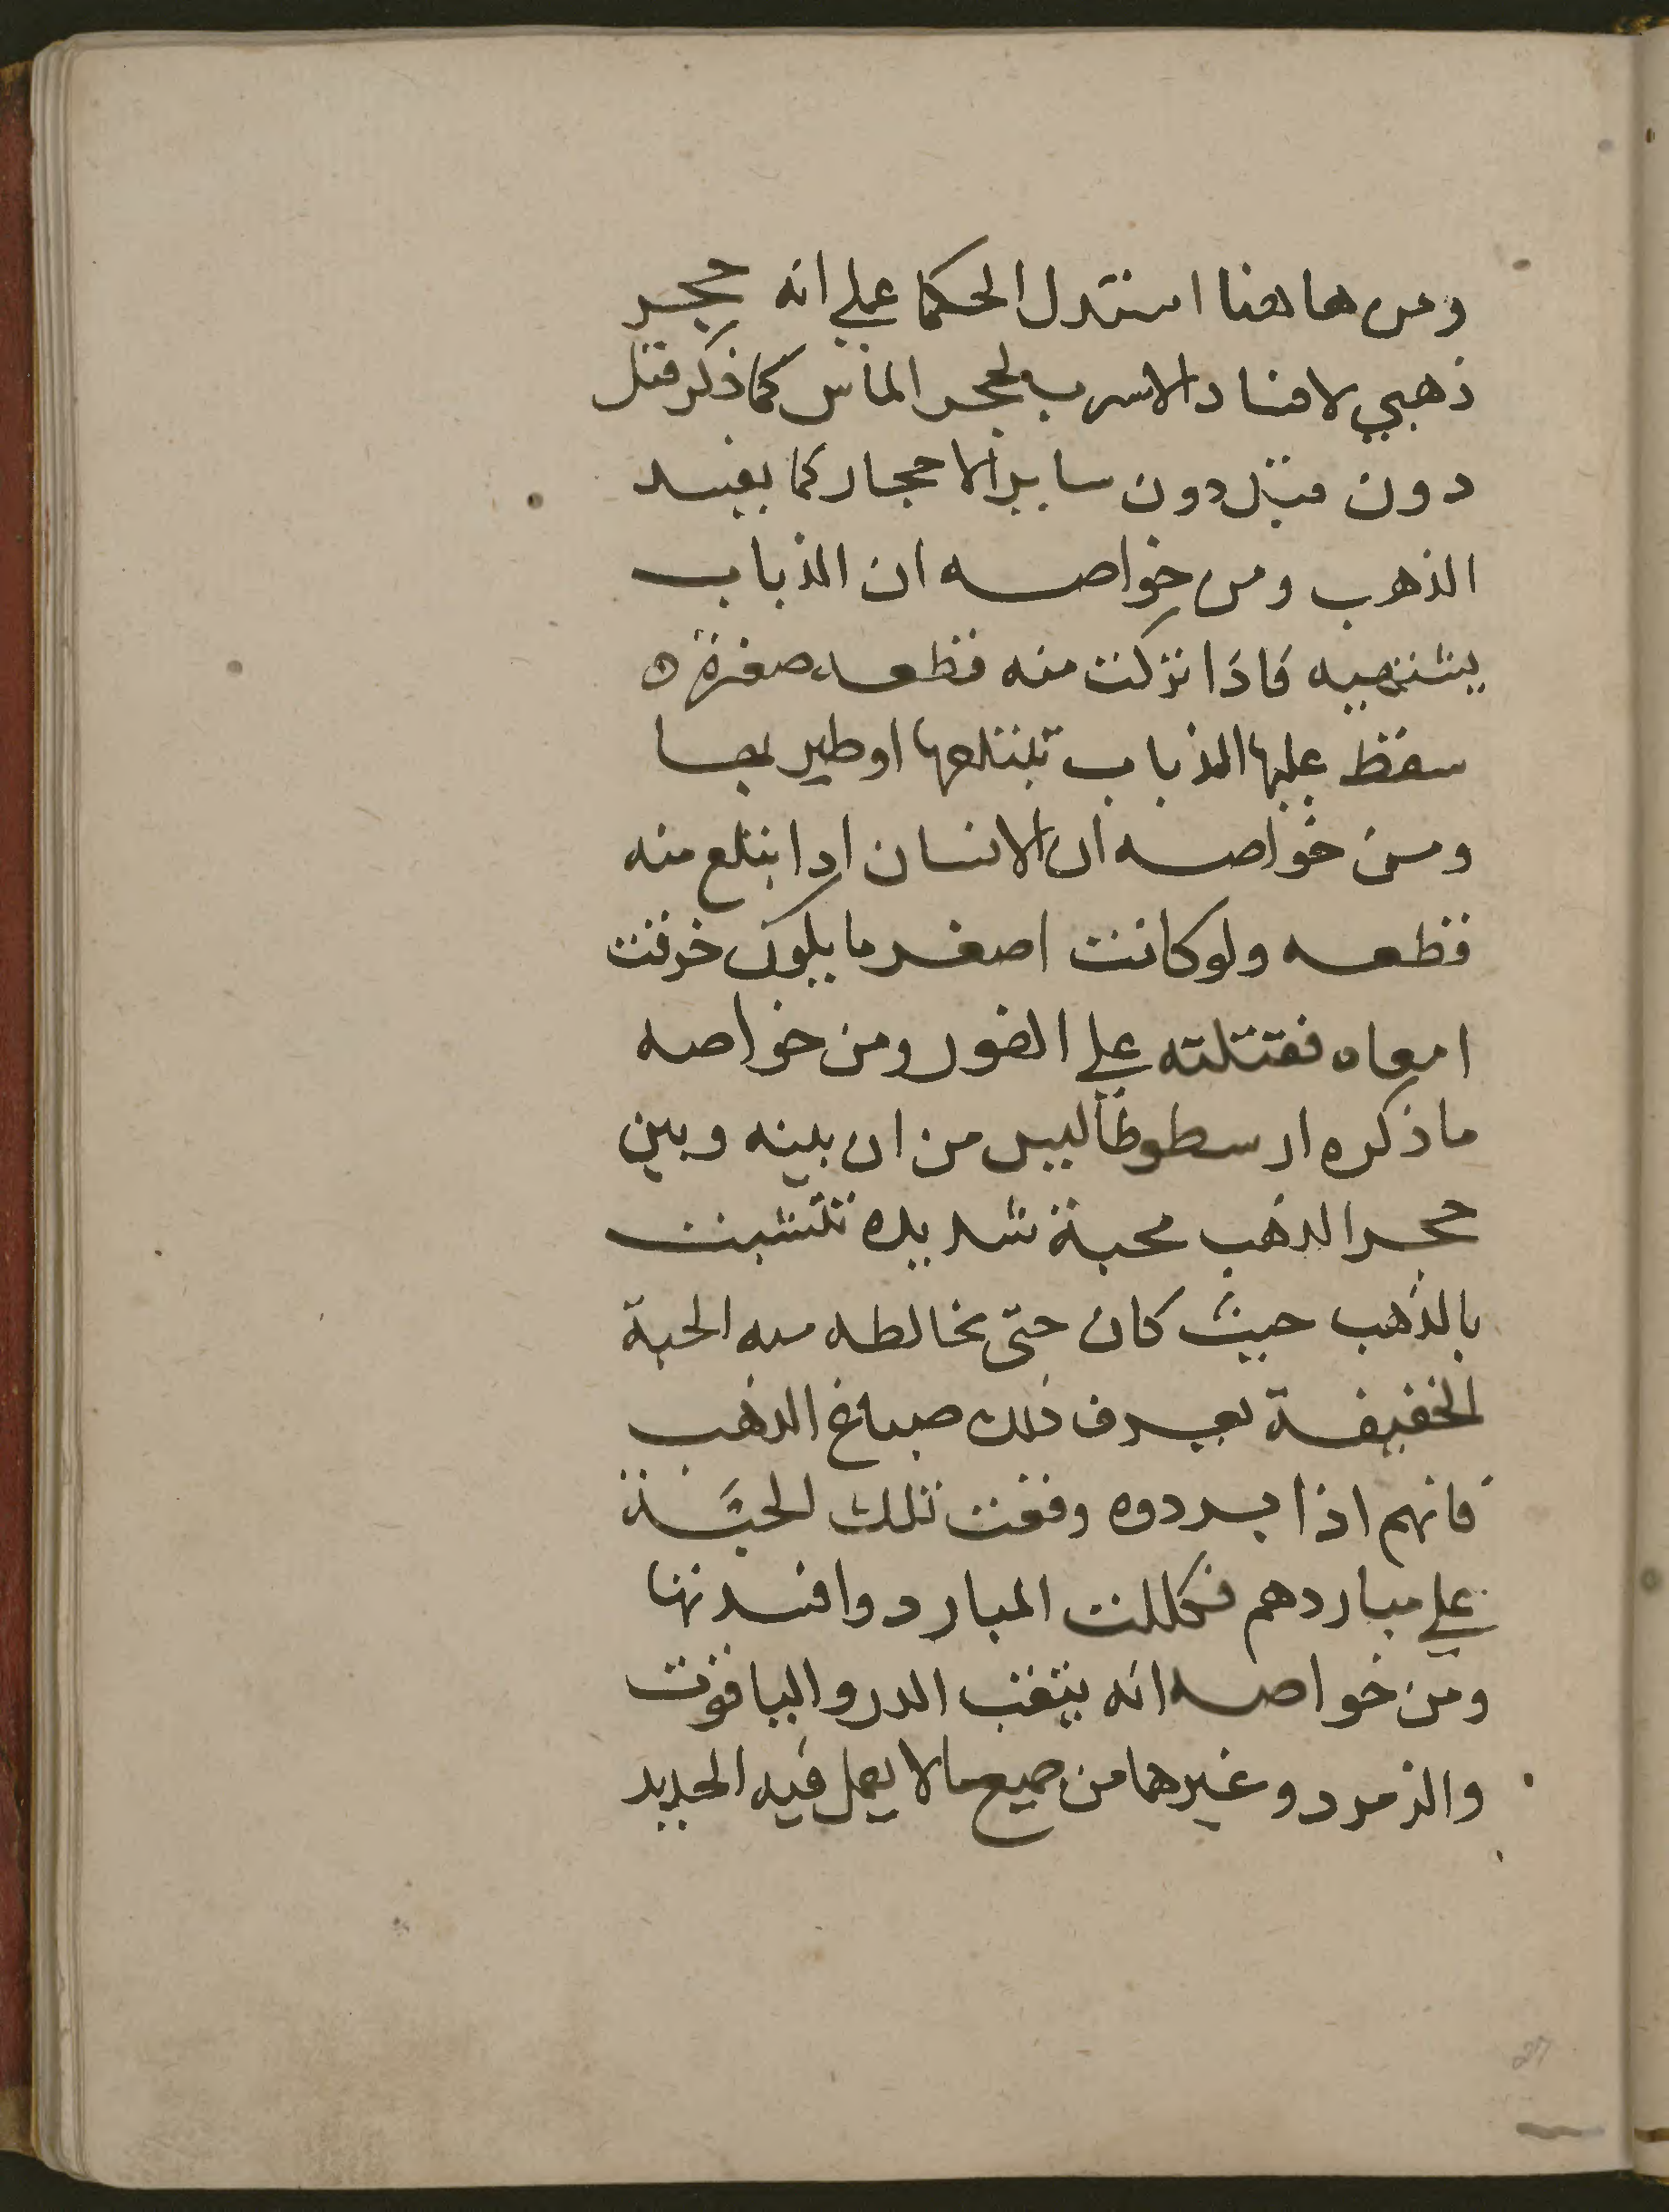 ومن هاهنا استدل الحكما علي انه حجر
ذهبي لافساد الاسرب لحجر الماس كما ذكر قبل
دون قبل دون ساير الاحجار كما يفسد
الذهب ومن خواصه ان الذباب
يشتهيه فاذا تركت منه قطعه صغرة
سقط عليها الذباب تبتلعها او طير بها
ومن خواصه ان الانسان اذا ابتلع منه
قطعه ولو كانت اصغر ما يكون خرقت
امعاه فقتلته علي الفور ومن خواصه
ما ذكره ارسطوطاليس من ان بينه وبين
حجر الذهب محبة شديده تتشبث
بالذهب حيث كان حتى تخالطه منه الحبة
الخفيفة يعرف ذلك صباغ الذهب
فانهم اذا بردوه وقفت تلك الحبة
علي مباردهم فكللت المبارد وافسدتها
ومن خواصه انه يثقب الدر والياقوت
والزمرد وغيرها من جميع مالا يعمل فيه الحديد